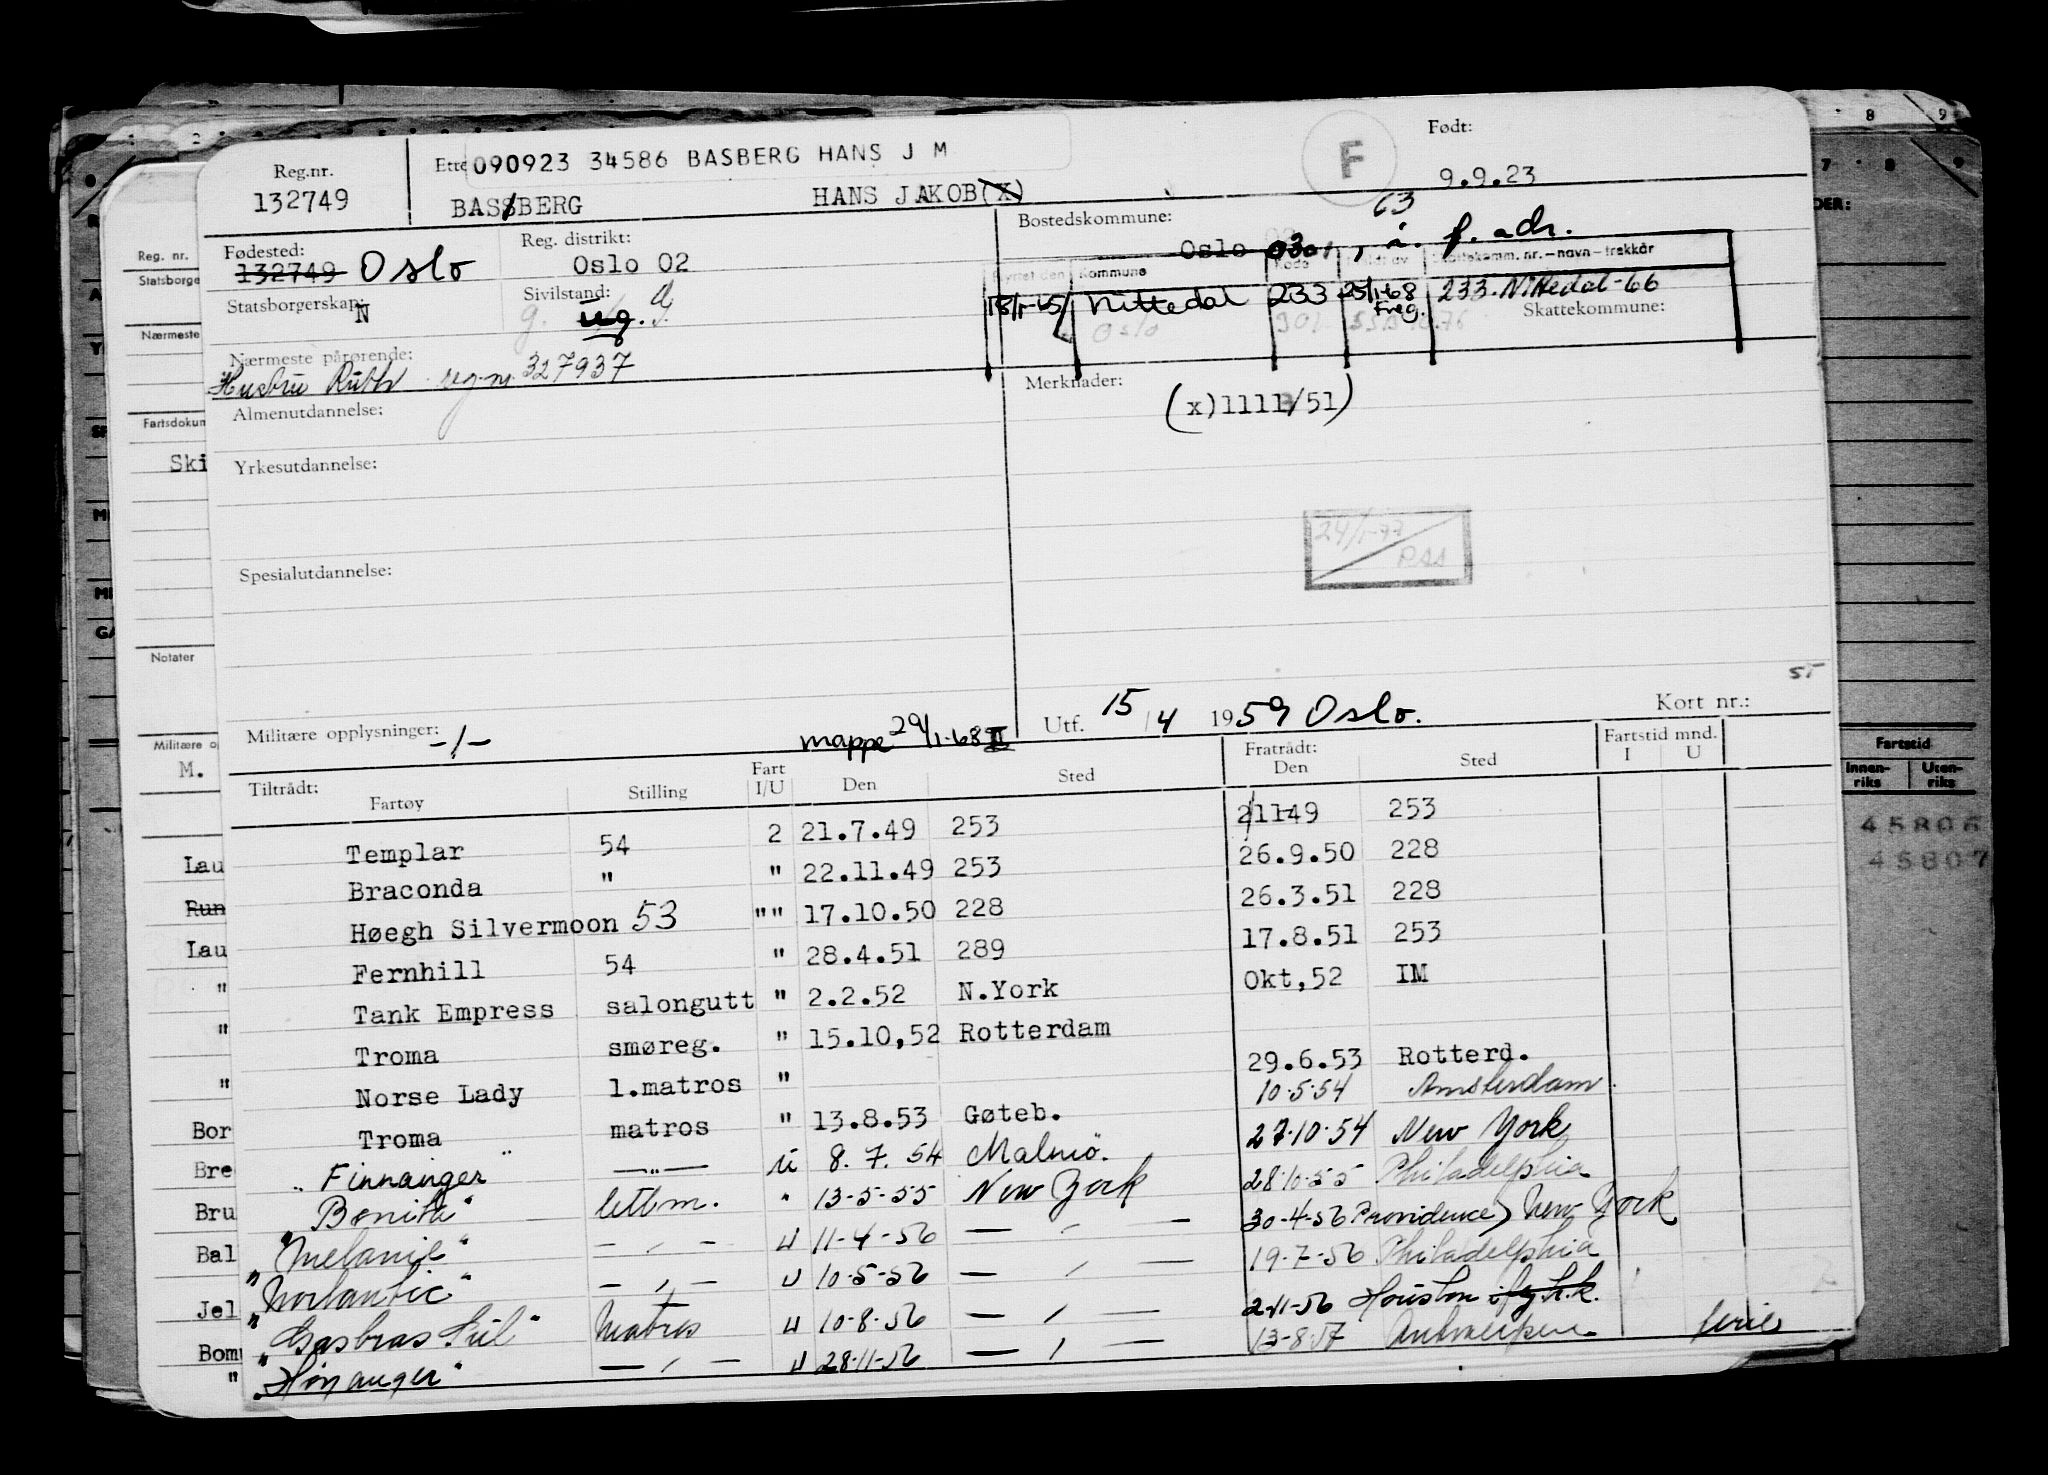 Reg.nr. Ette 090923 34586 BASBERG HANS J M F Født:
132749 BASSBERG HANS JAKOB(X) 9.9.23
Fødested: Reg. distrikt: Bostedskommune: 63
132749 Oslo Oslo 02 Oslo 0301, i. f. adr.
Flyttet den Kommune Kode Meldt av Skattekomm. nr.-navn-trekkår
Statsborgerskap: N Sivilstand: ug. 18/1-65 Nittedal 233 25/1-68 Freg. 233-Nittedal-66
Oslo 301 Skattekommune:
Nærmeste pårørende:
Hustru Ruth reg.nr. 327937 Merknader:
Almenutdannelse: (x)1111/51)
Yrkesutdannelse:
24/1-77
PSS
Spesialutdannelse:
55
Militære opplysninger: -/- mappe 29/1-68 II Utf. 15/4 1959 Oslo. Kort nr.:
Tiltrådt: Fartøy Stilling Fart I/U Den Sted Fratrådt: Den Sted Fartstid mnd. I U
Templar 54 2 21.7.49 253 21149 253
Braconda " " 22.11.49 253 26.9.50 228
Høegh Silvermoon 53 "" 17.10.50 228 26.3.51 228
Fernhill 54 " 28.4.51 289 17.8.51 253
Tank Empress salongutt " 2.2.52 N.York Okt,52 IM
Troma smøreg. " 15.10,52 Rotterdam
Norse Lady l.matros " 29.6.53 Rotterd.
Troma matros " 13.8.53 Gøteb. 10.5.54 Amsterdam
" Finnanger " —"— U 8.7.54 Malmö. 27.10.54 New York
" Bonita " lettm. " 13-5-55 New York 28.10.55 Philadelphia
" Melanie " — " — U 11-4-56 — " — 30-4-56 Providence) New York
" Norlantic " — " — U 10-5-56 — " — 19-7-56 Philadelphia
" Gasbras Sul " Matros U 10-8-56 — " — 2-11-56 Houston
" Høyanger " — " — U 28-11-56 — " — 13-8-57 Antwerpen ferie
Reg. nr.
Statsborge
Nærmeste
Fartsdokum
Ski
Notater
Militære op
M.
Lau
Run
Lau
"
"
"
Bor
Bre
Bru
Bal
Jel
Bom
"
8 9
7 8 9
DER:
Fartstid
Innen-riks Uten-riks
45806
45807